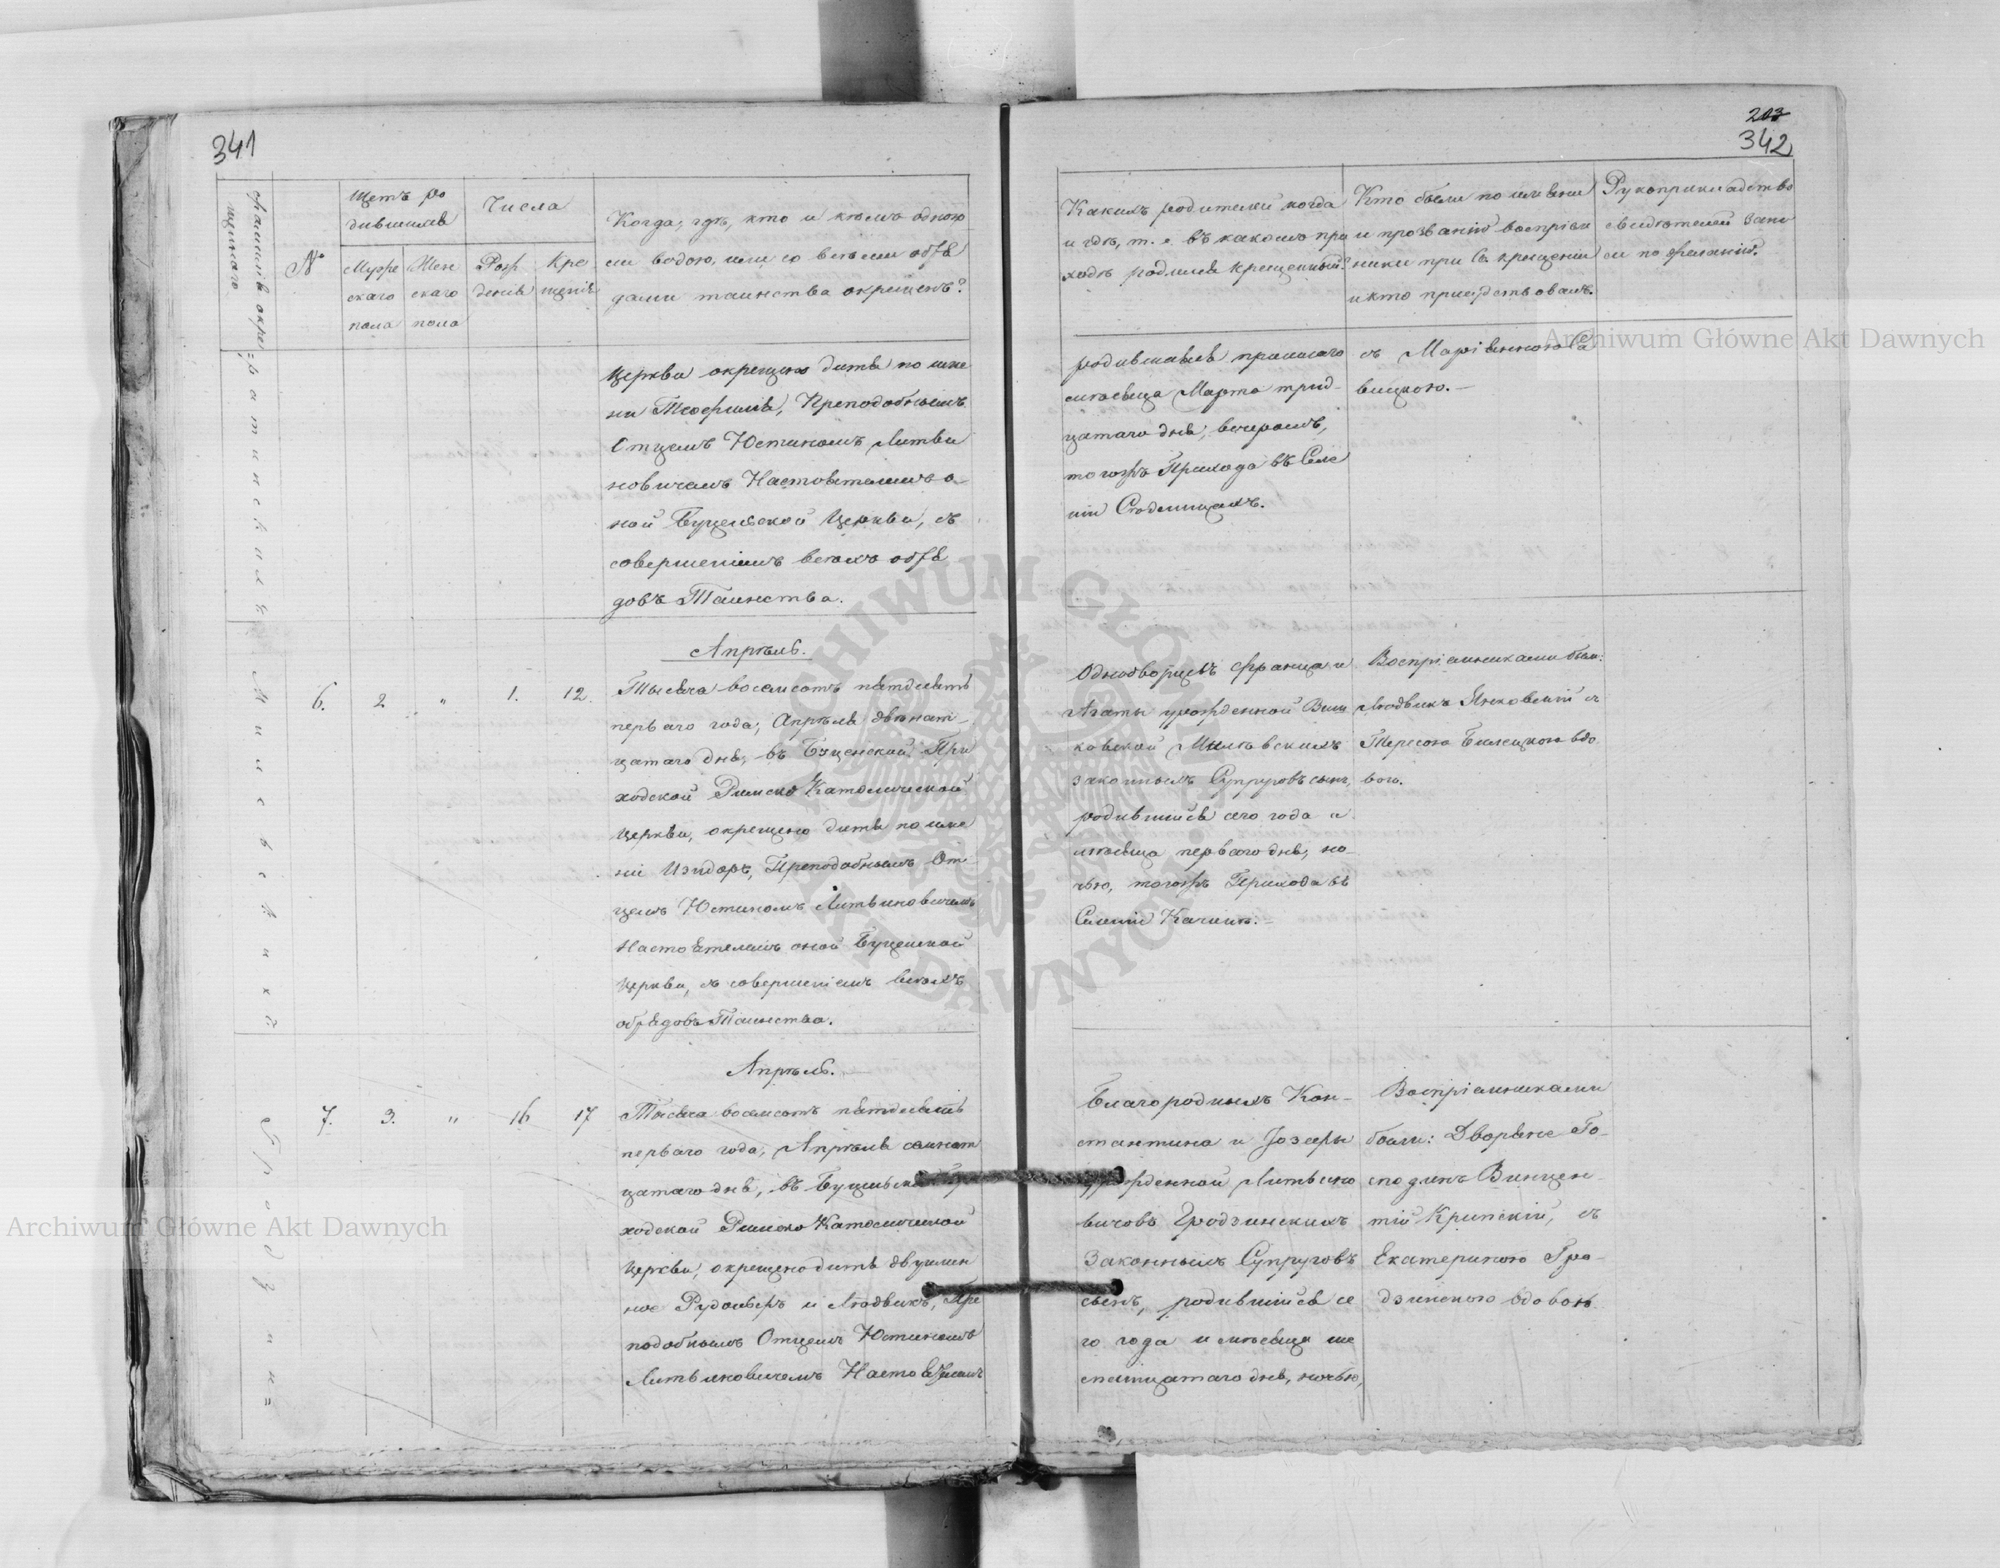 341
фамилія окре
щеннаго
№
Щетъ ро
дившихся
Муже
скаго
пола
Жен
скаго
пола
Числа
Рож
денія
Кре
щенія
Когда, гдѣ, кто и кѣмъ одною
ли водою, или со всѣми обря
дами таинства окрещенъ?
Церкви окрещено дитя по име
ни Теофилія, Преподобнымъ
Отцемъ Юстиномъ Литви
новичемъ Настоятелемъ о-
ной Буценской Церкви, съ
совершеніемъ всѣхъ обря
довъ Таинства.
Апрѣль.
6. 2 " 1. 12.
Тысяча восемсотъ пятдесятъ
перваго года, Апрѣля двѣнат-
цатаго дня, въ Буценской При
ходской Римско Католической
Церкви, окрещено дитя по име
ни Изидоръ, Преподобнымъ От-
цемъ Юстиномъ Литвиновичемъ
Настоятелемъ оной Буценской
Церкви, съ совершеніемъ всѣхъ
обрядовъ Таинства.
Апрѣль.
7. 3. " 16 17
Тысяча восемсотъ пятдесятъ
перваго года, Апрѣля семнат
цатаго дня, въ Буценской
ходской Римско Католической
Церкви, окрещено дитя двуимен
ное Рудольфъ и Людвикъ, Пре
подобнымъ Отцемъ Юстиномъ
Литвиновичемъ Настоятелемъ
203
342
Какихъ родителей когда
и гдѣ, т. е. въ какомъ при
ходѣ родился крещенный?
Кто были по имени
и прозванію воспріем
ники при Св. крещеніи
и кто присудствовалъ.
Рукоприкладство
свидѣтелей Запи
си по желанію.
родившаяся прошлаго
мѣсяца Марта трид-
цатаго дня, вечеромъ,
тогожъ Прихода въ Селе
ніи
съ Маріанною Са
вицкою.-
Однодворцевъ Франца и
Агаты урожденной Виш
ковской
законныхъ Супруговъ сынъ,
родившійся сего года и
мѣсяца перваго дня, но-
чью, тогожъ Прихода въ
Селеніи Качинѣ.-
Воспріемниками были:
Людвикъ Янковскій съ
Тересою Билецкою вдо
вою.
Благородныхъ Кон-
стантина и Іозефы
урожденной Литвино
вичовъ Гродзинскихъ
Законныхъ Супруговъ
сынъ, родившійся се
го года и мѣсяца ше
стнатцатаго дня, ночью,
Воспріемниками
были: Дворяне Го-
сподинъ Винцен-
тій Крипскій, съ
Екатериною Гро-
дзинскою вдовою
Archiwum Główne Akt Dawnych
Archiwum Główne Akt Dawnych
ARCHIWUM GŁÓWNE AKT DAWNYCH